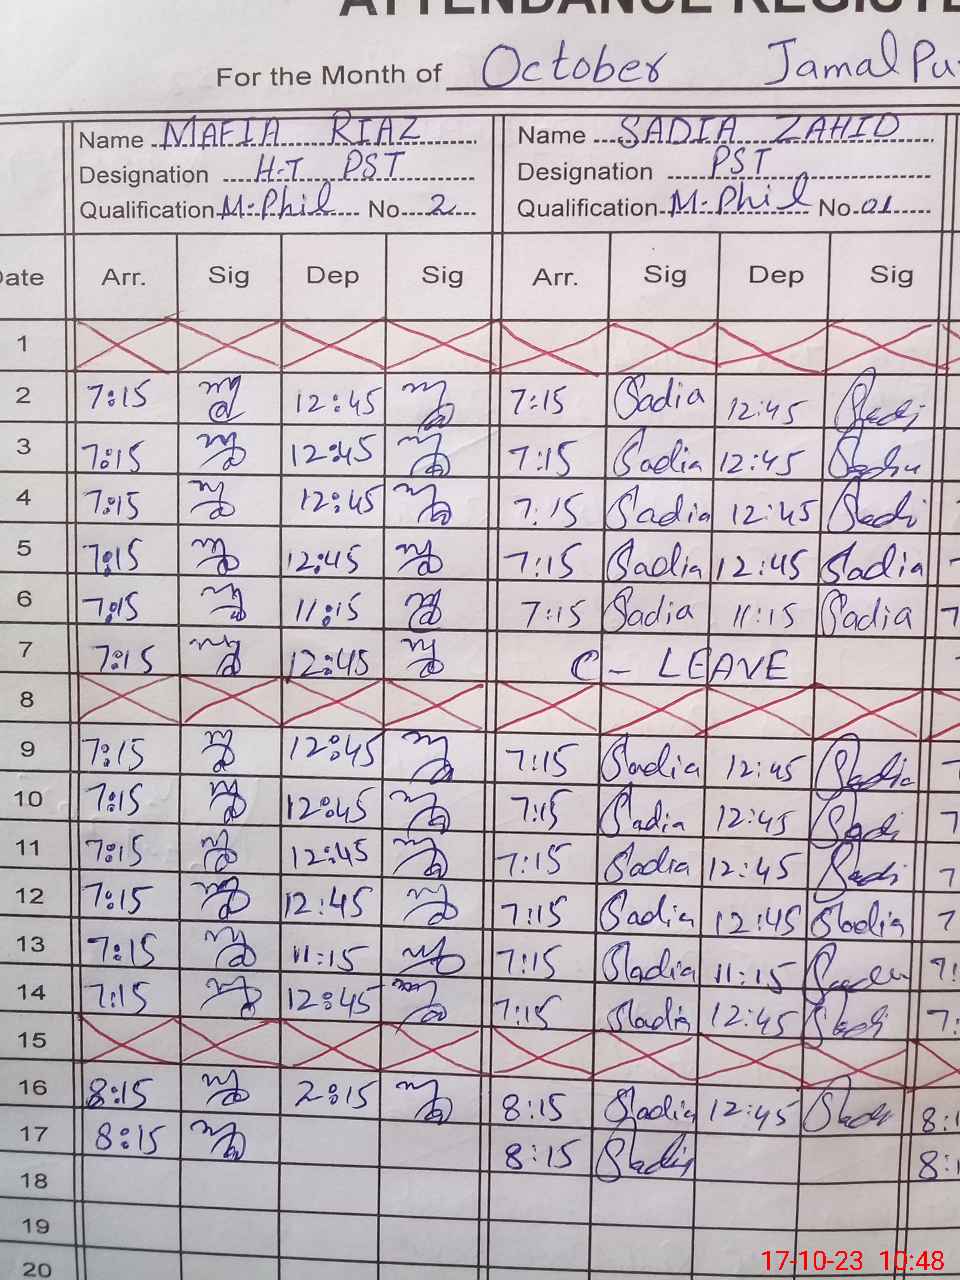 ATTENDANCE REGISTE
For the Month of October Jamal Pu
Name MAFIA RIAZ Name SADIA ZAHID
Designation H-T PST Designation PST
Qualification M-Phil No 2 Qualification M-Phil No 01
Date Arr. Sig Dep Sig Arr. Sig Dep Sig
1
2 7:15 12:45 7:15 Sadia 12:45 Sadi
3 7:15 12:45 7:15 Sadia 12:45
4 7:15 12:45 7:15 Sadia 12:45 Sadi
5 7:15 12:45 7:15 Sadia 12:45 Sadia
6 7:15 11:15 7:15 Sadia 11:15 Sadia 7
7 7:15 12:45 C- LEAVE
8
9 7:15 12:45 7:15 Sadia 12:45 Sadia 7
10 7:15 12:45 7:15 Sadia 12:45 Sadi 7
11 7:15 12:45 7:15 Sadia 12:45 Sadi 7
12 7:15 12:45 7:15 Sadia 12:45 Sadia 7
13 7:15 11:15 7:15 Sadia 11:15 7:
14 7:15 12:45 7:15 Sadia 12:45 Sadi 7:
15
16 8:15 2:15 8:15 Sadia 12:45 Sadi 8:1
17 8:15 8:15 Sadia 8:1
18
19
20
17-10-23 10:48